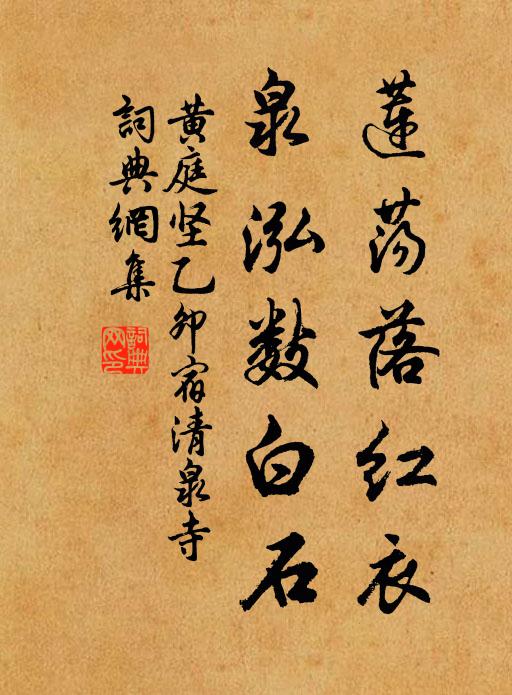 蓮蕩落红衣
泉泓数白石
黄庭坚乙卯宿清泉寺
詞典網集
詞典网印